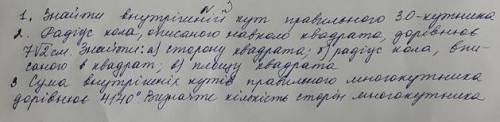 1. Знайти внутрішній кут правильного 30-кутника
2. Радіус кола, описаного навколо квадрата, дорівнює
7√2см. Знайти: а) сторону квадрата; б) радіус кола, впи-
саного в квадрат; в) площу квадрата
3 Сума внутрішніх кутів правильного многокутника
дорівнює 4140° Визначте кількість сторін многокутника